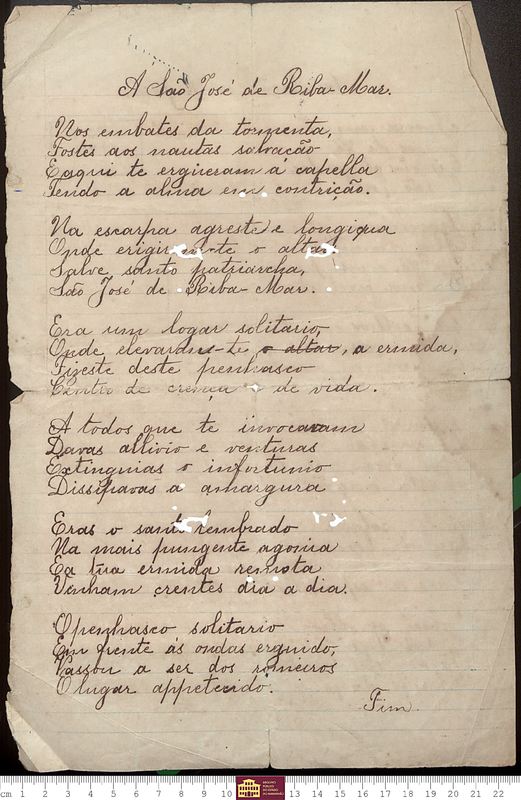 A São José de Riba-Mar.
Nos embates da tormenta,
Fostes aos nautas salvação
E aqui te ergueram a capella
Tendo a alma em contrição.
Na escarpa agreste e longiqua
Onde erigiram-te o altar
Salve, santo patriarcha,
São José de Riba-Mar.
Era um logar solitario,
Onde elevaram-te o altar, a ermida,
Fizeste deste penhasco
Centro de crença e de vida.
A todos que te invocavam
Davas allivio e venturas
Extinguias o infortunio
Dissipavas a amargura
Eras o santo lembrado
Na mais pungente agonia
E a tua ermida remota
Venham crentes dia a dia.
O penhasco solitario
Em frente ás ondas erguido,
Passou a ser dos romeiros
O lugar appetecido.
Fim.
cm 1 2 3 4 5 6 7 8 9 10 11 12 13 14 15 16 17 18 19 20 21 22
ARQUIVO PÚBLICO DO ESTADO DO MARANHÃO